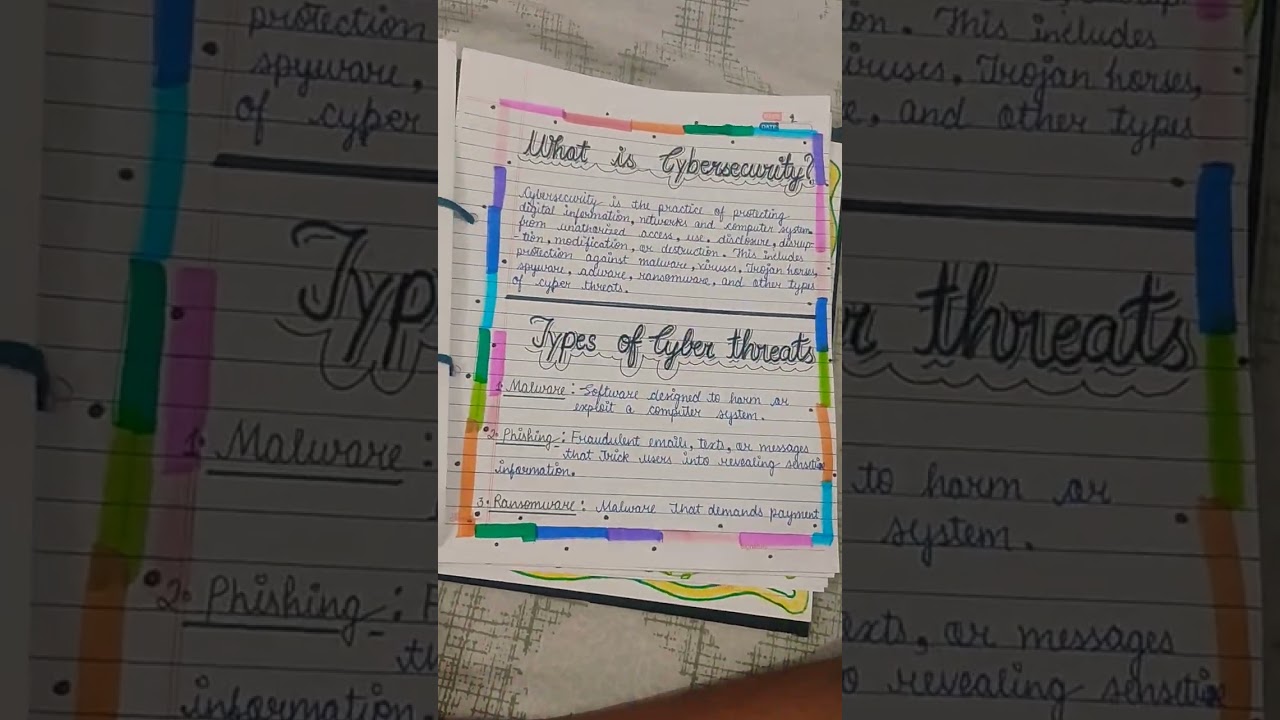 DATE
What is Cybersecurity?
Cybersecurity is the practice of protecting
digital information, networks and computer system
from unathorized access, use, disclosure, disrup-
tion, modification, or destruction. This includes
protection against malware, viruses, Trojan horses,
spyware, adware, ransomware, and other types
of cyper threats.
Types of Cyber threats
1. Malware :- Software designed to harm or
exploit a computer system.
2. Phishing : Fraudulent emails, texts, or messages
that trick users into revealing sensitive
information.
3. Ransomware : Malware that demands payment